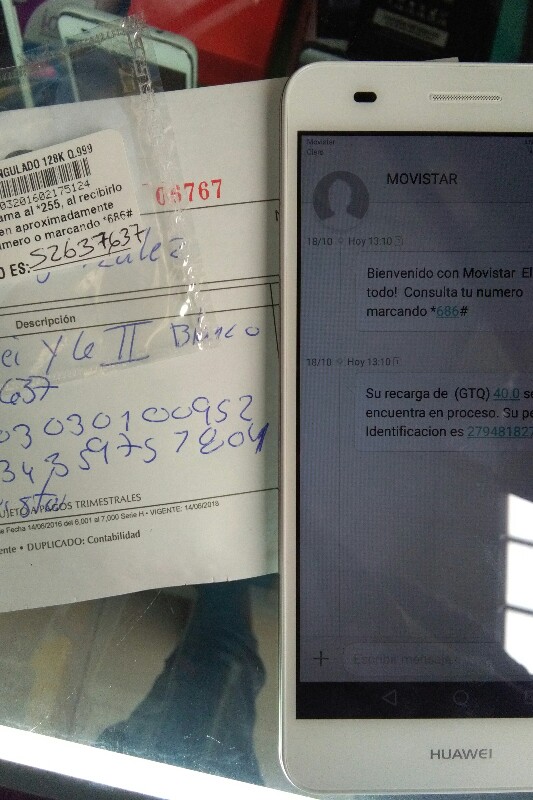 NGULADO 128K Q.999
03201602175124
ama al *255, al recibirlo
en aproximadamente
úmero o marcando *686#
O ES: 52637637
06767
Descripción
Y6 II Blanco
637
03030100952
SUJETO A PAGOS TRIMESTRALES
Fecha 14/06/2016 del 6,001 al 7,000 Serie H • VIGENTE: 14/06/2018
ente • DUPLICADO: Contabilidad
Movistar
Claro
MOVISTAR
18/10 Hoy 13:10
Bienvenido con Movistar El
todo! Consulta tu numero
marcando *686#
18/10 Hoy 13:10
Su recarga de (GTQ) 40.0 se
encuentra en proceso. Su pe
Identificacion es 279481827
Escribir mensaje
HUAWEI